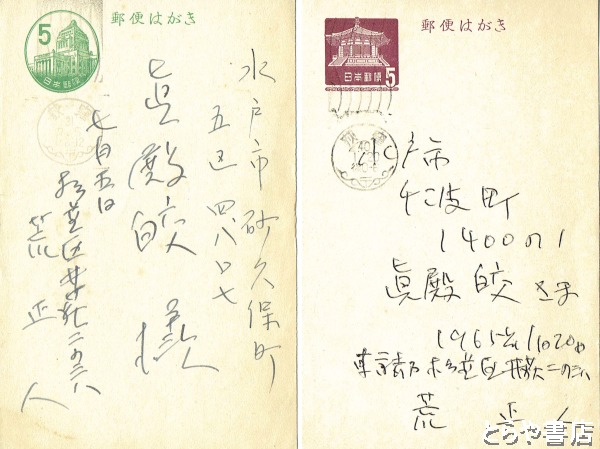 郵便はがき
5
日本郵便
水戸市砂久保町
五区四八ノ七
眞殿皎様
七月五日
杉並区
荒正人
郵便はがき
日本郵便
5
水戸市
千波町
1400の1
眞殿皎さま
1965年1月20日
東京都杉並区
荒正人
とらや書店